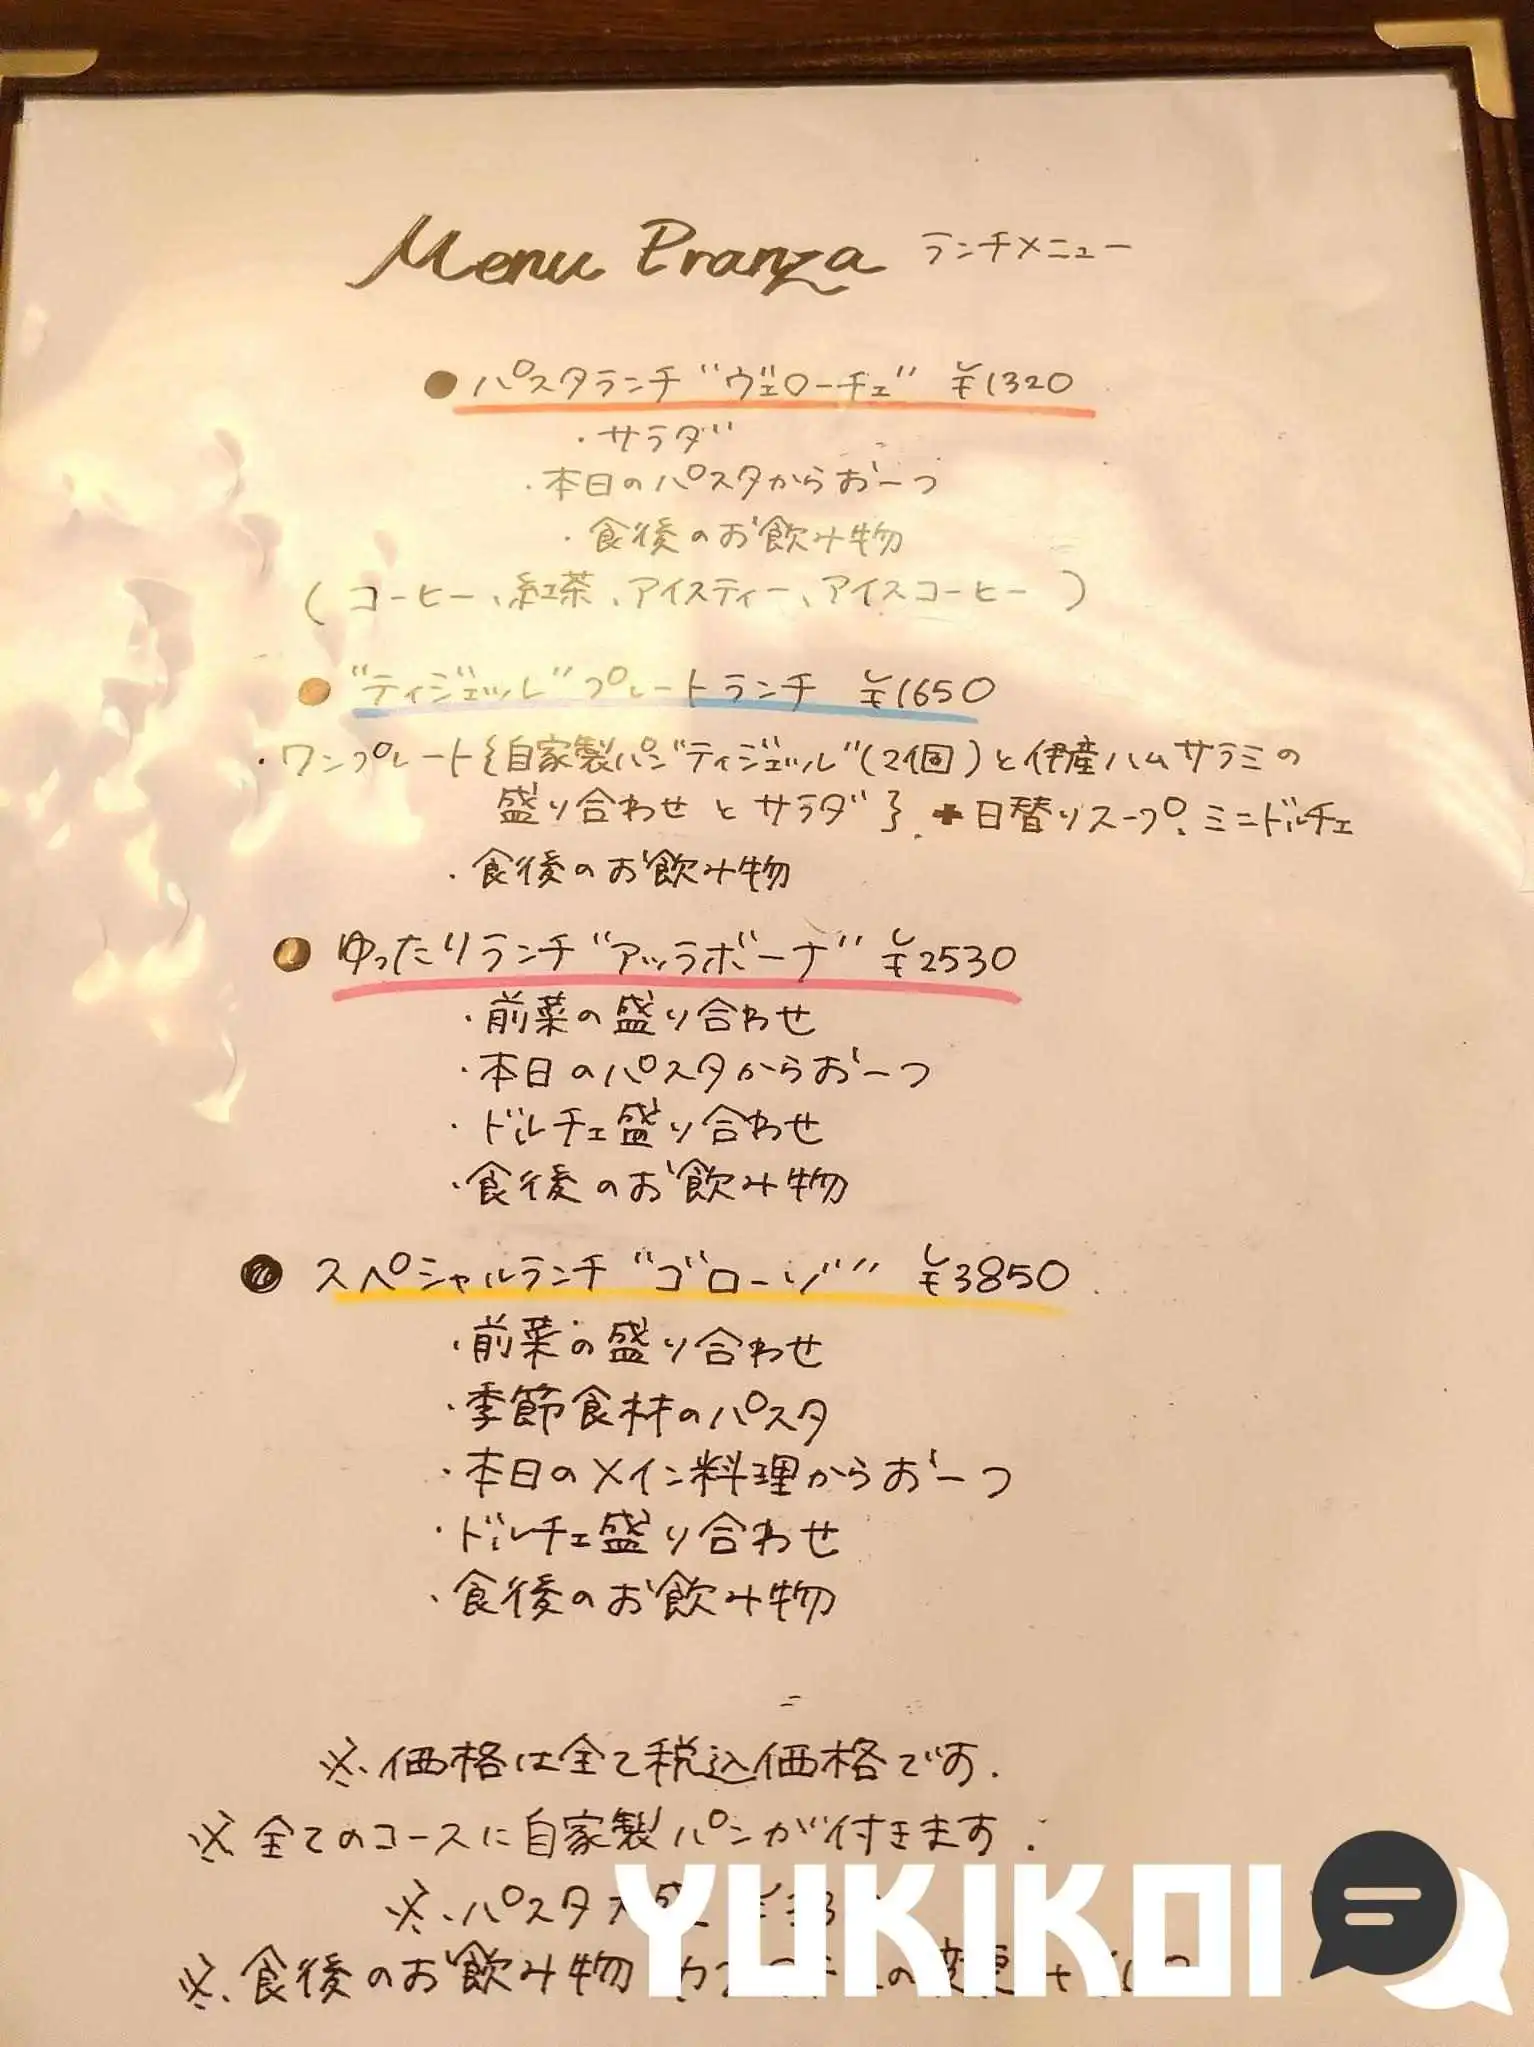 Menu Pranza ランチメニュー
● パスタランチ"ヴェローチェ" ¥1320
・サラダ
・本日のパスタからお一つ
・食後のお飲み物
(コーヒー、紅茶、アイスティー、アイスコーヒー)
● "ティジェッル"プレートランチ ¥1650
・ワンプレート{自家製パン"ティジェッル"(2個)と伊産ハムサラミの
盛り合わせとサラダ}. +日替りスープ、ミニドルチェ
・食後のお飲み物
● ゆったりランチ"アッラボーナ" ¥2530
・前菜の盛り合わせ
・本日のパスタからお一つ
・ドルチェ盛り合わせ
・食後のお飲み物
● スペシャルランチ"ゴローゾ" ¥3850
・前菜の盛り合わせ
・季節食材のパスタ
・本日のメイン料理からお一つ
・ドルチェ盛り合わせ
・食後のお飲み物
※.価格は全て税込価格です.
※全てのコースに自家製パンが付きます.
※.パスタ
※.食後のお飲み物
YUKIKOI